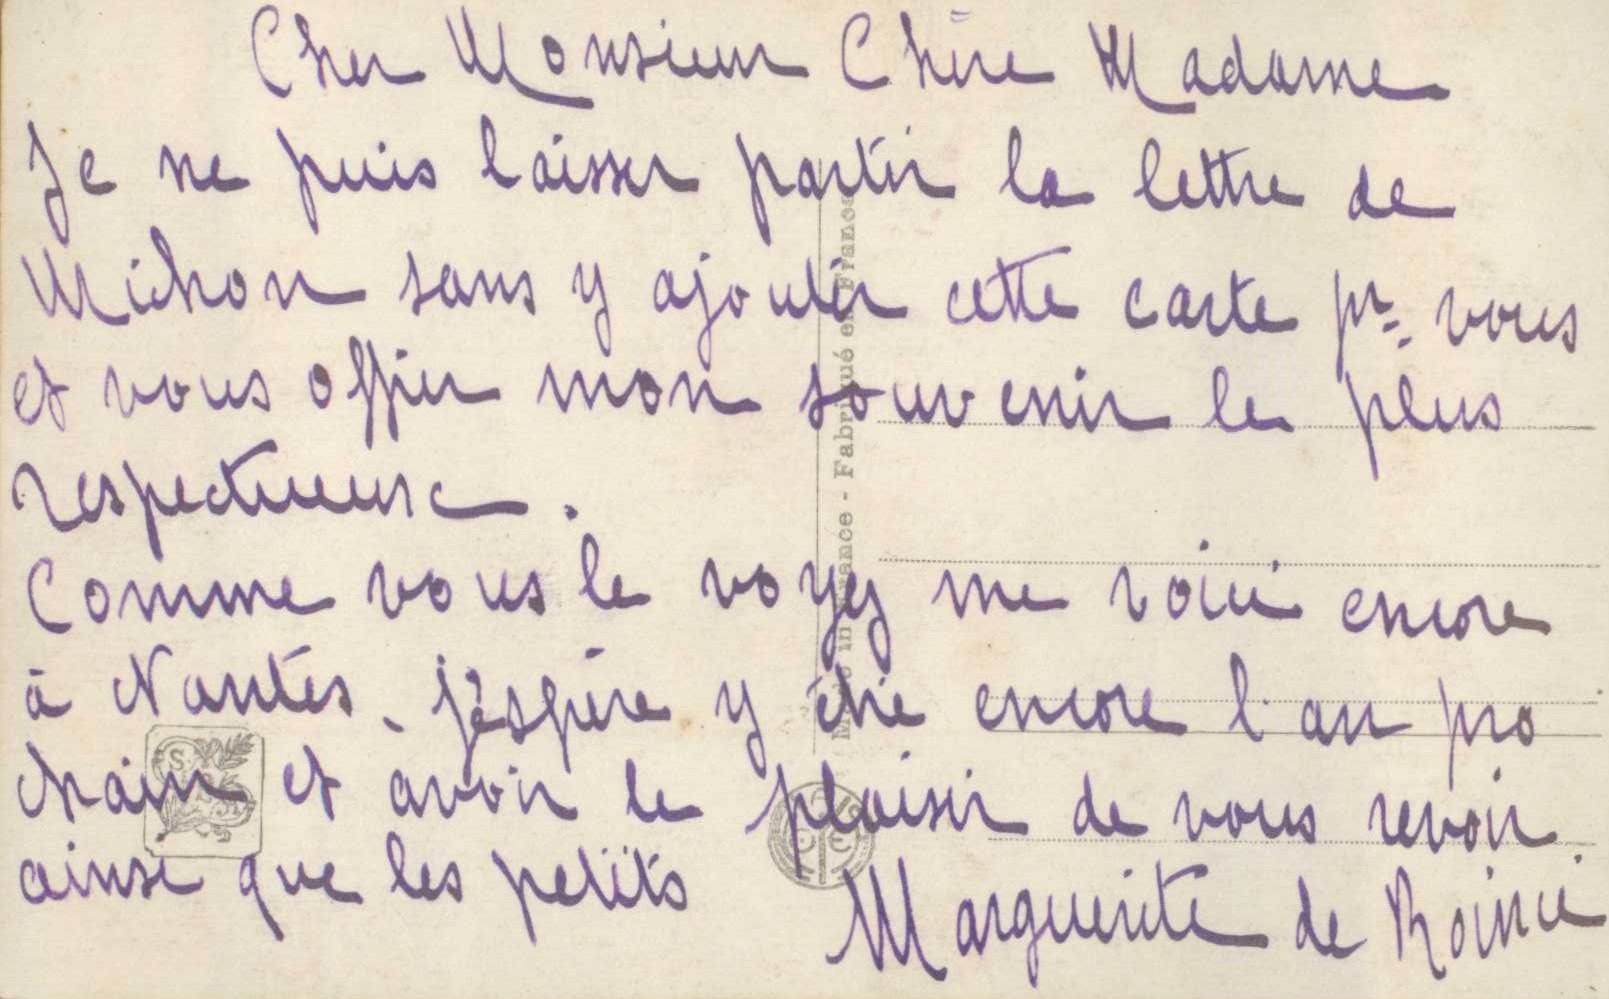 Cher Monsieur Chère Madame
Je ne puis laisser partir la lettre de
Michon sans y ajouter cette carte pr. vous
et vous offrir mon souvenir le plus
respectueux.
Comme vous le voyez me voici encore
à Nantes. J'espère y être encore l'an pro
chain et avoir le plaisir de vous revoir
ainsi que les petits
Marguerite de
Made in France - Fabriqué en France